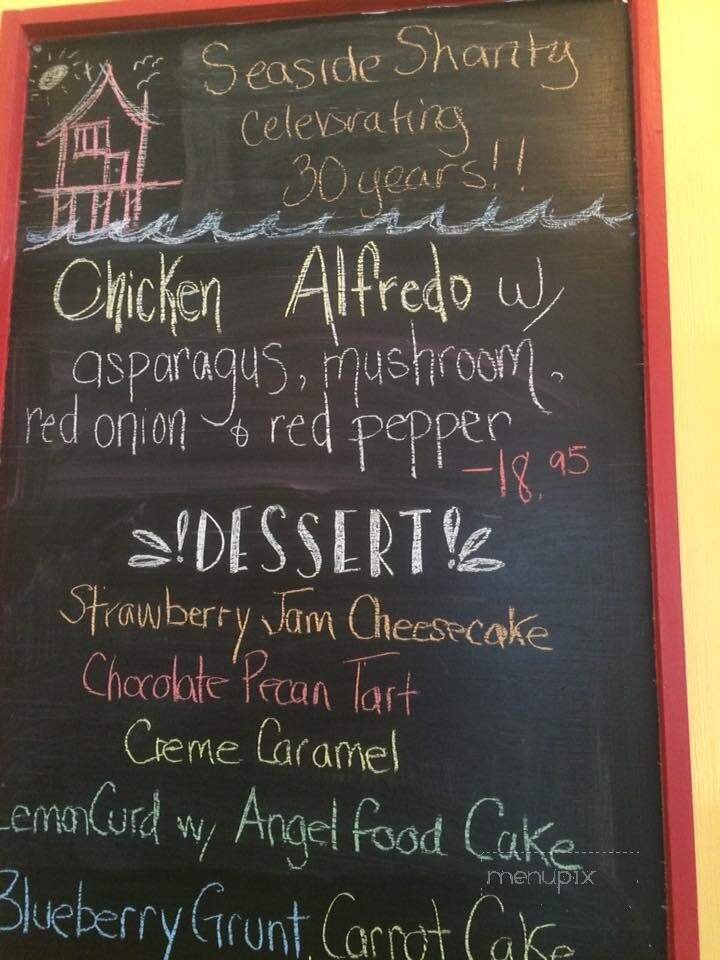 Seaside Shanty
celebrating
30 years!!
Chicken Alfredo w/
asparagus, mushroom,
red onion & red pepper
-18.95
!DESSERT!
Strawberry Jam Cheesecake
Chocolate Pecan Tart
Creme Caramel
Lemon Curd w/ Angel food Cake
menupix
Blueberry Grunt, Carrot Cake